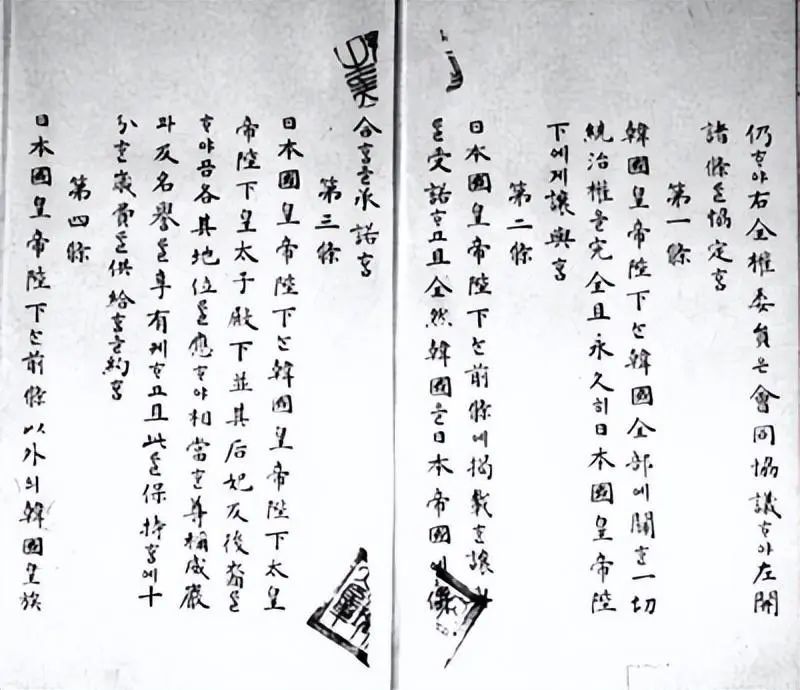 仍ᄒᆞ야右全權委員은會同協議ᄒᆞ야左開
諸條를協定ᄒᆞᆷ
第一條
韓國皇帝陛下ᄂᆞᆫ韓國全部에關ᄒᆞᆫ一切
統治權을完全且永久히日本國皇帝陛
下에게讓與ᄒᆞᆷ
第二條
日本國皇帝陛下ᄂᆞᆫ前條에揭載ᄒᆞᆫ讓與
를受諾ᄒᆞ고且全然韓國을日本帝國에併
合ᄒᆞᆷ을承諾ᄒᆞᆷ
第三條
日本國皇帝陛下ᄂᆞᆫ韓國皇帝陛下太皇
帝陛下皇太子殿下並其后妃及後裔로
ᄒᆞ야곰各其地位를應ᄒᆞ야相當ᄒᆞᆫ尊稱威嚴
과及名譽를享有케ᄒᆞ고且此를保持ᄒᆞᆷ에十
分ᄒᆞᆫ歲費를供給ᄒᆞᆷ을約ᄒᆞᆷ
第四條
日本國皇帝陛下ᄂᆞᆫ前條以外의韓國皇族